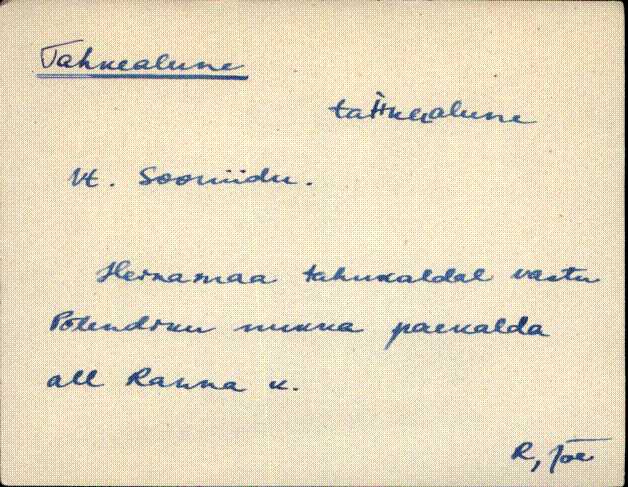 Tahkealune
tahkealune
Vt. Sooniidu.
Heinamaa tahukaldal vastu
Põlendiku nukka paekalda
all Ranna k.
R, Jõe